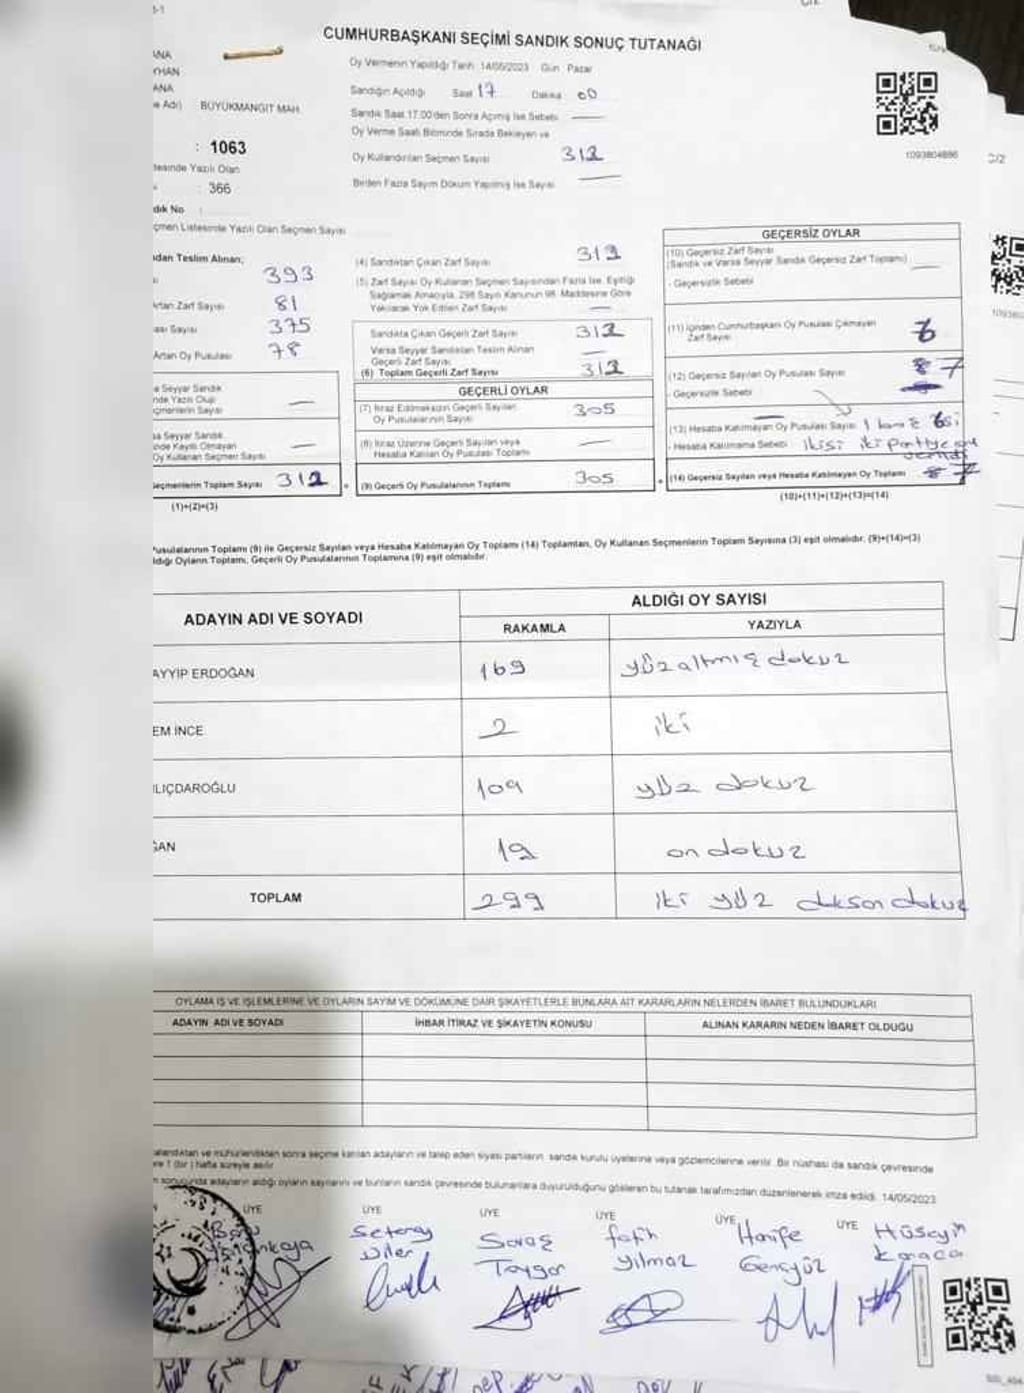 CUMHURBAŞKANI SEÇİMİ SANDIK SONUÇ TUTANAĞI
Oy Vermenin Yapıldığı Tarih: 14/05/2023 Gün: Pazar
ANA
YHAN
ANA
Sandığın Açıldığı Saat 17 Dakika 00
e Adı) BÜYÜKMANGIT MAH.
Sandık Saat 17:00'den Sonra Açılmış İse Sebebi
Oy Verme Saati Bitiminde Sırada Bekleyen ve
: 1063
Oy Kullandırılan Seçmen Sayısı 312
1093804886
tesinde Yazılı Olan
: 366
Birden Fazla Sayım Döküm Yapılmış İse Sayısı
dık No :
çmen Listesinde Yazılı Olan Seçmen Sayısı
ndan Teslim Alınan;
393
rtan Zarf Sayısı 81
ası Sayısı 375
Artan Oy Pusulası 78
a Seyyar Sandık
nde Yazılı Olup
çmenlerin Sayısı
sa Seyyar Sandık
nde Kayıtlı Olmayan
Oy Kullanan Seçmen Sayısı
eçmenlerin Toplam Sayısı 312
(1)+(2)=(3)
(4) Sandıktan Çıkan Zarf Sayısı 312
(5) Zarf Sayısı Oy Kullanan Seçmen Sayısından Fazla İse, Eşitliği
Sağlamak Amacıyla, 298 Sayılı Kanunun 98. Maddesine Göre
Yakılarak Yok Edilen Zarf Sayısı
Sandıkta Çıkan Geçerli Zarf Sayısı 312
Varsa Seyyar Sandıktan Teslim Alınan
Geçerli Zarf Sayısı
(6) Toplam Geçerli Zarf Sayısı 312
GEÇERLİ OYLAR
(7) İtiraz Edilmeksizin Geçerli Sayılan
Oy Pusulalarının Sayısı 305
(8) İtiraz Üzerine Geçerli Sayılan veya
Hesaba Katılan Oy Pusulası Toplamı
(9) Geçerli Oy Pusulalarının Toplamı 305
GEÇERSİZ OYLAR
(10) Geçersiz Zarf Sayısı
(Sandık ve Varsa Seyyar Sandık Geçersiz Zarf Toplamı)
- Geçersizlik Sebebi
(11) İçinden Cumhurbaşkanı Oy Pusulası Çıkmayan
Zarf Sayısı
(12) Geçersiz Sayılan Oy Pusulası Sayısı 7
- Geçersizlik Sebebi
(13) Hesaba Katılmayan Oy Pusulası Sayısı
- Hesaba Katılmama Sebebi ikisi iki partiye
(14) Geçersiz Sayılan veya Hesaba Katılmayan Oy Toplamı 7
(10)+(11)+(12)+(13)=(14)
Pusulalarının Toplamı (9) ile Geçersiz Sayılan veya Hesaba Katılmayan Oy Toplamı (14) Toplamları, Oy Kullanan Seçmenlerin Toplam Sayısına (3) eşit olmalıdır. (9)+(14)=(3)
ldığı Oyların Toplamı, Geçerli Oy Pusulalarının Toplamına (9) eşit olmalıdır.
ADAYIN ADI VE SOYADI
ALDIĞI OY SAYISI
RAKAMLA YAZIYLA
AYYİP ERDOĞAN 169 yüz altmış dokuz
EM İNCE 2 iki
LIÇDAROĞLU 109 yüz dokuz
ĞAN 19 on dokuz
TOPLAM 299 iki yüz doksan dokuz
OYLAMA İŞ VE İŞLEMLERİNE VE OYLARIN SAYIM VE DÖKÜMÜNE DAİR ŞİKAYETLERLE BUNLARA AİT KARARLARIN NELERDEN İBARET BULUNDUKLARI
ADAYIN ADI VE SOYADI İHBAR İTİRAZ VE ŞİKAYETİN KONUSU ALINAN KARARIN NEDEN İBARET OLDUĞU
alandıktan ve mühürlendikten sonra seçime katılan adayların ve talep eden siyasi partilerin, sandık kurulu üyelerine veya gözlemcilerine verilir. Bir nüshası da sandık çevresinde
re 1 (bir ) hafta süreyle asılır.
n sonucunda adayların aldığı oyların sayılarını ve bunların sandık çevresinde bulunanlara duyurulduğunu gösteren bu tutanak tarafımızdan düzenlenerek imza edildi. 14/05/2023
ÜYE ÜYE ÜYE ÜYE ÜYE ÜYE
Savaş Fatih Hanife Hüseyin
Yılmaz Gençyüz Karaca